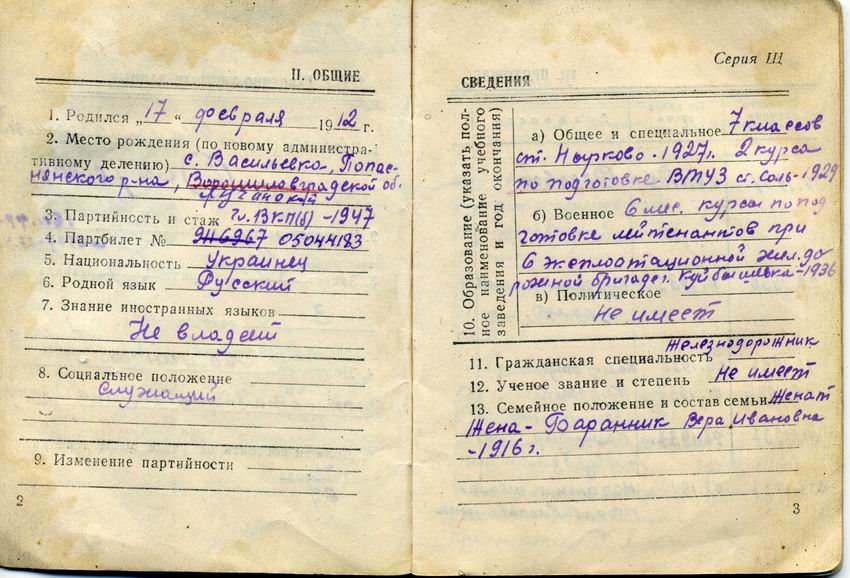 II. ОБЩИЕ
1. Родился „17“ февраля 1912 г.
2. Место рождения (по новому администра-
тивному делению) с. Васильевка, Попас-
нянского р-на, Ворошиловградской об.
Луганской
3. Партийность и стаж Чл. ВКП(б) - 1947
4. Партбилет № 05044183
5. Национальность Украинец
6. Родной язык Русский
7. Знание иностранных языков
Не владеет
8. Социальное положение
Служащий
9. Изменение партийности
2
Серия Ш
СВЕДЕНИЯ
10. Образование (указать пол-
ное наименование учебного
заведения и год окончания)
а) Общее и специальное 7 классов
ст. Нырково - 1927г. 2 курса
по подготовке ВТУЗ ст. Соль - 1929
б) Военное 6 мес. курсы по под
готовке лейтенантов при
6 эксплоатационной жел. до
рожной бригаде г. Куйбышевка - 1936
в) Политическое
Не имеет
Железнодорожник
11. Гражданская специальность
12. Ученое звание и степень Не имеет
13. Семейное положение и состав семьи Женат
Жена - Баранник Вера Ивановна
- 1916 г.
3